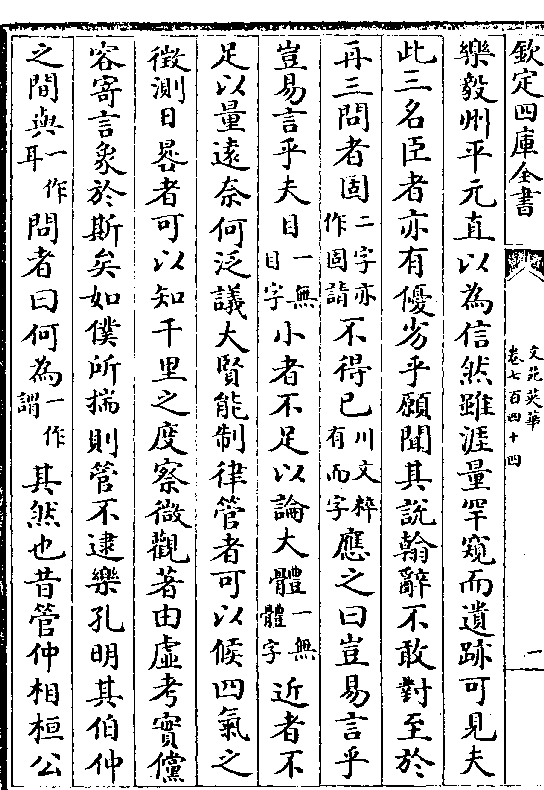 欽定四庫全書
文苑英華
卷七百四十四
一
樂毅州平元直以為信然雖涯量罕窺而遺跡可見夫
此三名臣者亦有優劣乎願聞其說翰辭不敢對至於
再三問者固二字亦作固請不得已川文粹有而字應之曰豈易言乎
豈易言乎夫目一無目字小者不足以論大體一無體字近者不
足以量遠奈何泛議大賢能制律管者可以候四氣之
徴測日晷者可以知千里之度察微觀著由虛考實儻
容寄言象於斯矣如僕所揣則管不逮樂孔明其伯仲
之間與一作耳問者曰何為一作謂其然也昔管仲相桓公